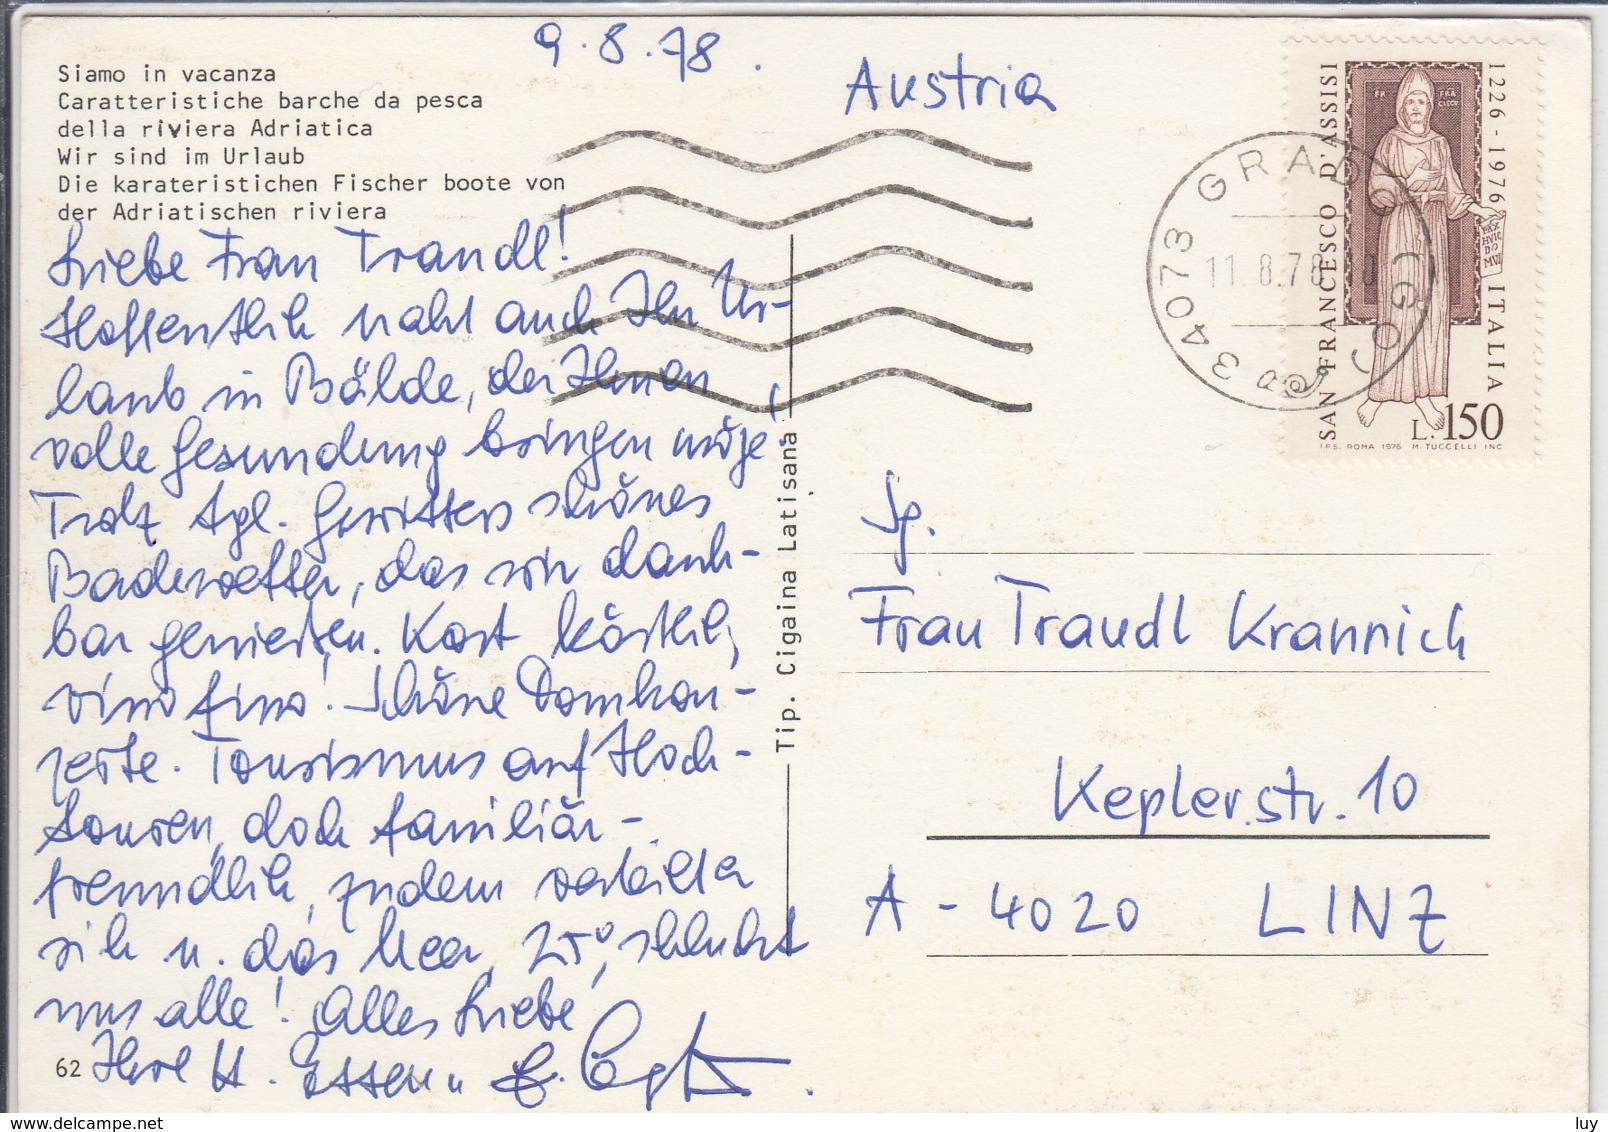 9.8.78.
Siamo in vacanza
Caratteristiche barche da pesca
della riviera Adriatica
Wir sind im Urlaub
Die karateristichen Fischer boote von
der Adriatischen riviera
Austria
SAN FRANCESCO D'ASSISI
1226-1976
ITALIA
FR FRA
CISCV
PAX
HVIC
DO
MVI
L.150
I.P.S. ROMA 1976 M. TUCCELLI INC
34073 GRADO
11.8.78
Liebe Frau Traudl!
Hoffentlich naht auch Ihr Ur-
laub in Bälde, der Ihnen
volle Gesundung bringen möge!
Trotz tgl. Gewitters schönes
Badewetter, das wir dank-
bar genießen. Kost köstlich,
vino fino! Schöne Domkon-
zerte. Tourismus auf Hoch-
touren, doch familiär-
freundlich, zudem verteilt er
sich u. das Meer, 25°, schluckt
uns alle! Alles Liebe
Ihre H.
62
Tip. Cigaina Latisana
Sg.
Frau Traudl Krannich
Keplerstr. 10
A - 4020 LINZ
luy
www.delcampe.net